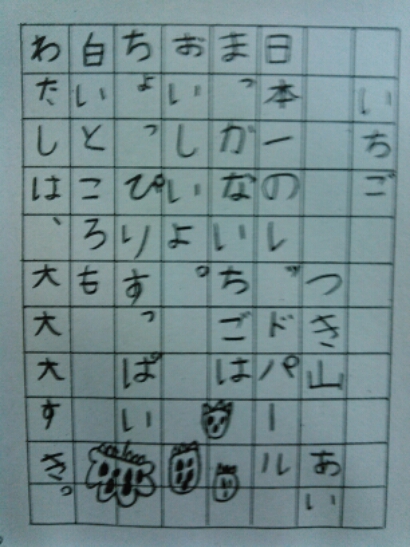 いちご
つき山 あい
日本一のレッドパール
まっがないちごは
おいしいよ。
ちょっぴりすっぱい
白いところも
わたしは、大大大すき。